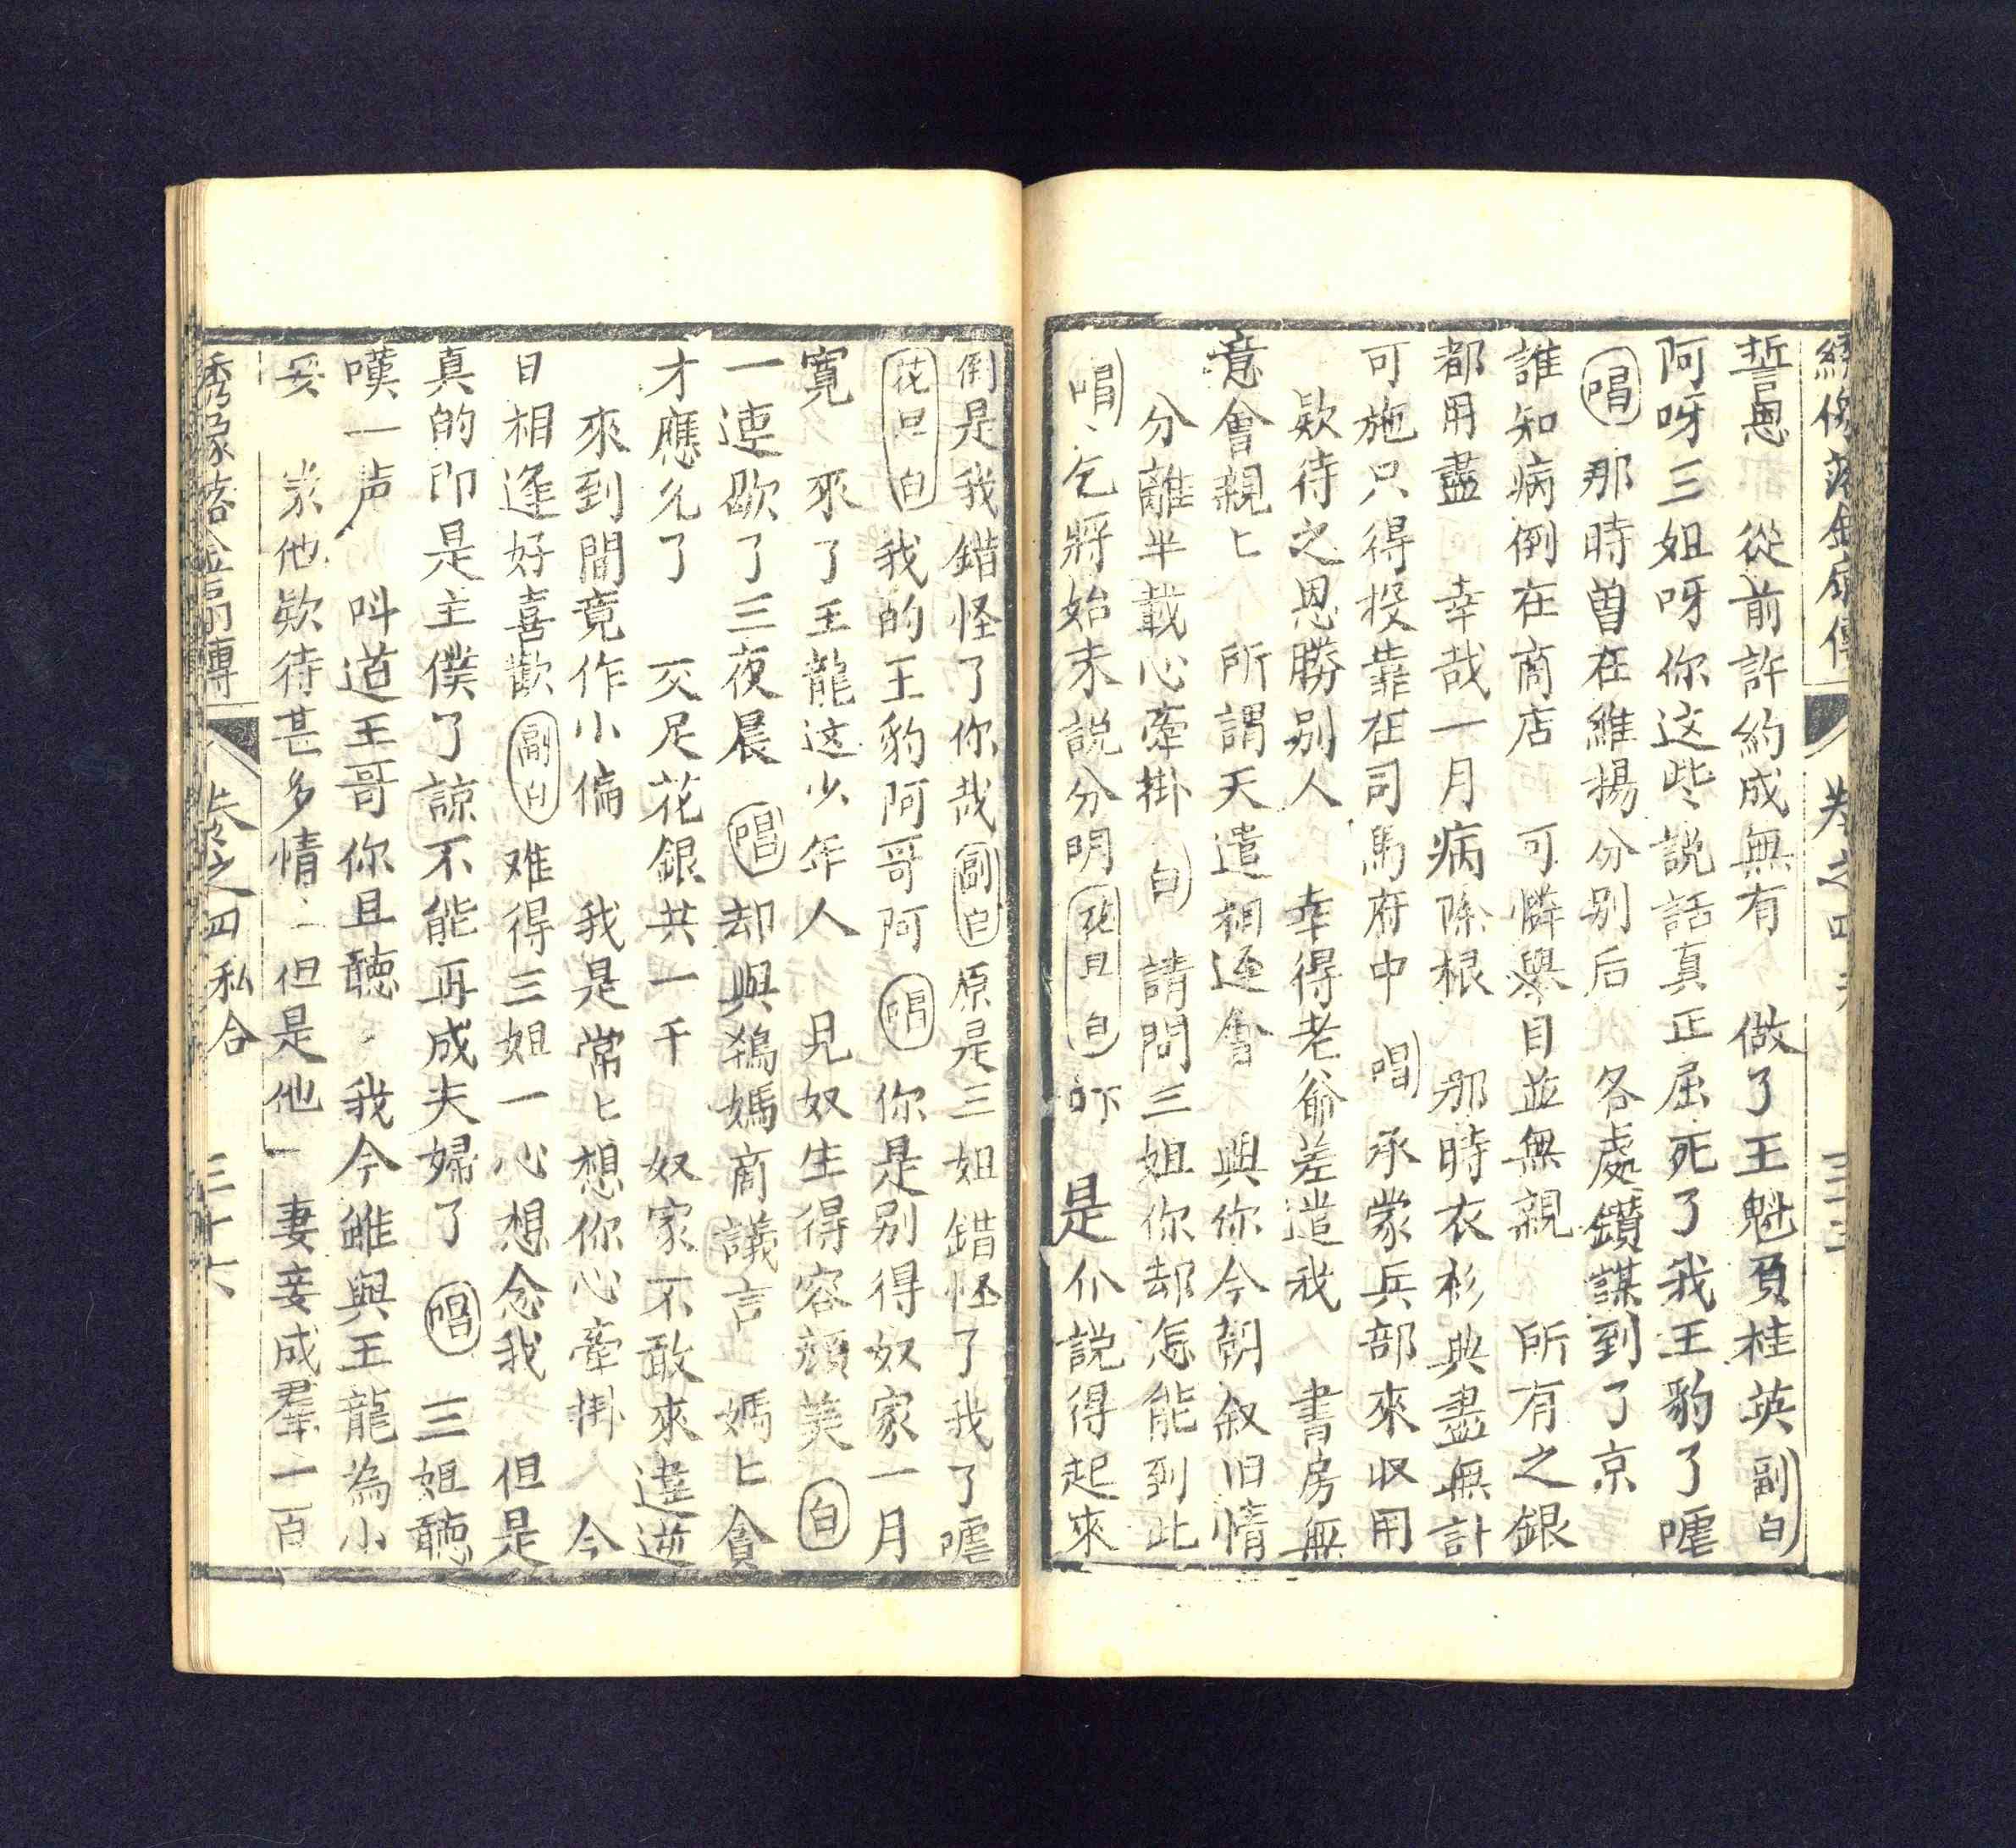 繡像落金扇傳 卷之四
誓恩 從前許約成無有 做了王魁負桂英 副白
阿呀三姐呀你这些說話真正屈死了我王豹了嚛
唱 那時曾在維揚分别后 各處鑽謀到了京
誰知病倒在商店 可憐舉目並無親 所有之銀
都用盡 幸哉一月病除根 那時衣衫典盡無計
可施只得投靠在司馬府中 唱 承蒙兵部來收用
欵待之恩勝别人 幸得老爺差遣我 書房無
意會親匕 所謂天遣相逢會 與你今朝叙旧情
分離半載心牽掛 白 請問三姐你却怎能到此
唱 乞將始末説分明 花旦白 是仆説得起來
倒是我錯怪了你哉 副白 原是三姐錯怪了我了嚛
花旦白 我的王豹阿哥阿 唱 你是别得奴家一月
寛 來了王龍这少年人 見奴生得容顔美 白
一連歇了三夜晨 唱 却與鴇媽商議言 媽匕貪
才應允了 交足花銀共一千 奴家不敢來違逆
來到間竟作小偏 我是常匕想你心牽掛 今
日相逢好喜歡 副白 难得三姐一心想念我 但是
真的即是主僕了諒不能再成夫婦了 唱 三姐聽
嘆一声 叫道王哥你且聽 我今雖與王龍為小
妾 蒙他欵待甚多情 但是他 妻妾成羣一百
秀像落金扇傳 卷之四 私合 三十六